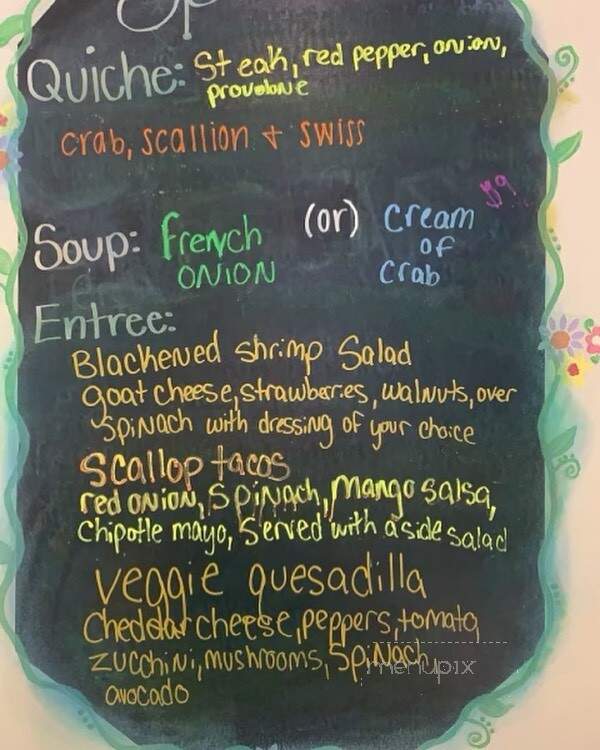 Quiche: Steak, red pepper, onion,
provolone
crab, scallion + swiss
$9
Soup: French (or) Cream
ONION of
crab
Entree:
Blackened shrimp Salad
goat cheese, strawberries, walnuts, over
spinach with dressing of your choice
Scallop tacos
red onion, Spinach, Mango salsa,
Chipotle mayo, Served with a side salad
veggie quesadilla
Cheddar cheese, peppers, tomato
zucchini, mushrooms, Spinach
avocado
menupix